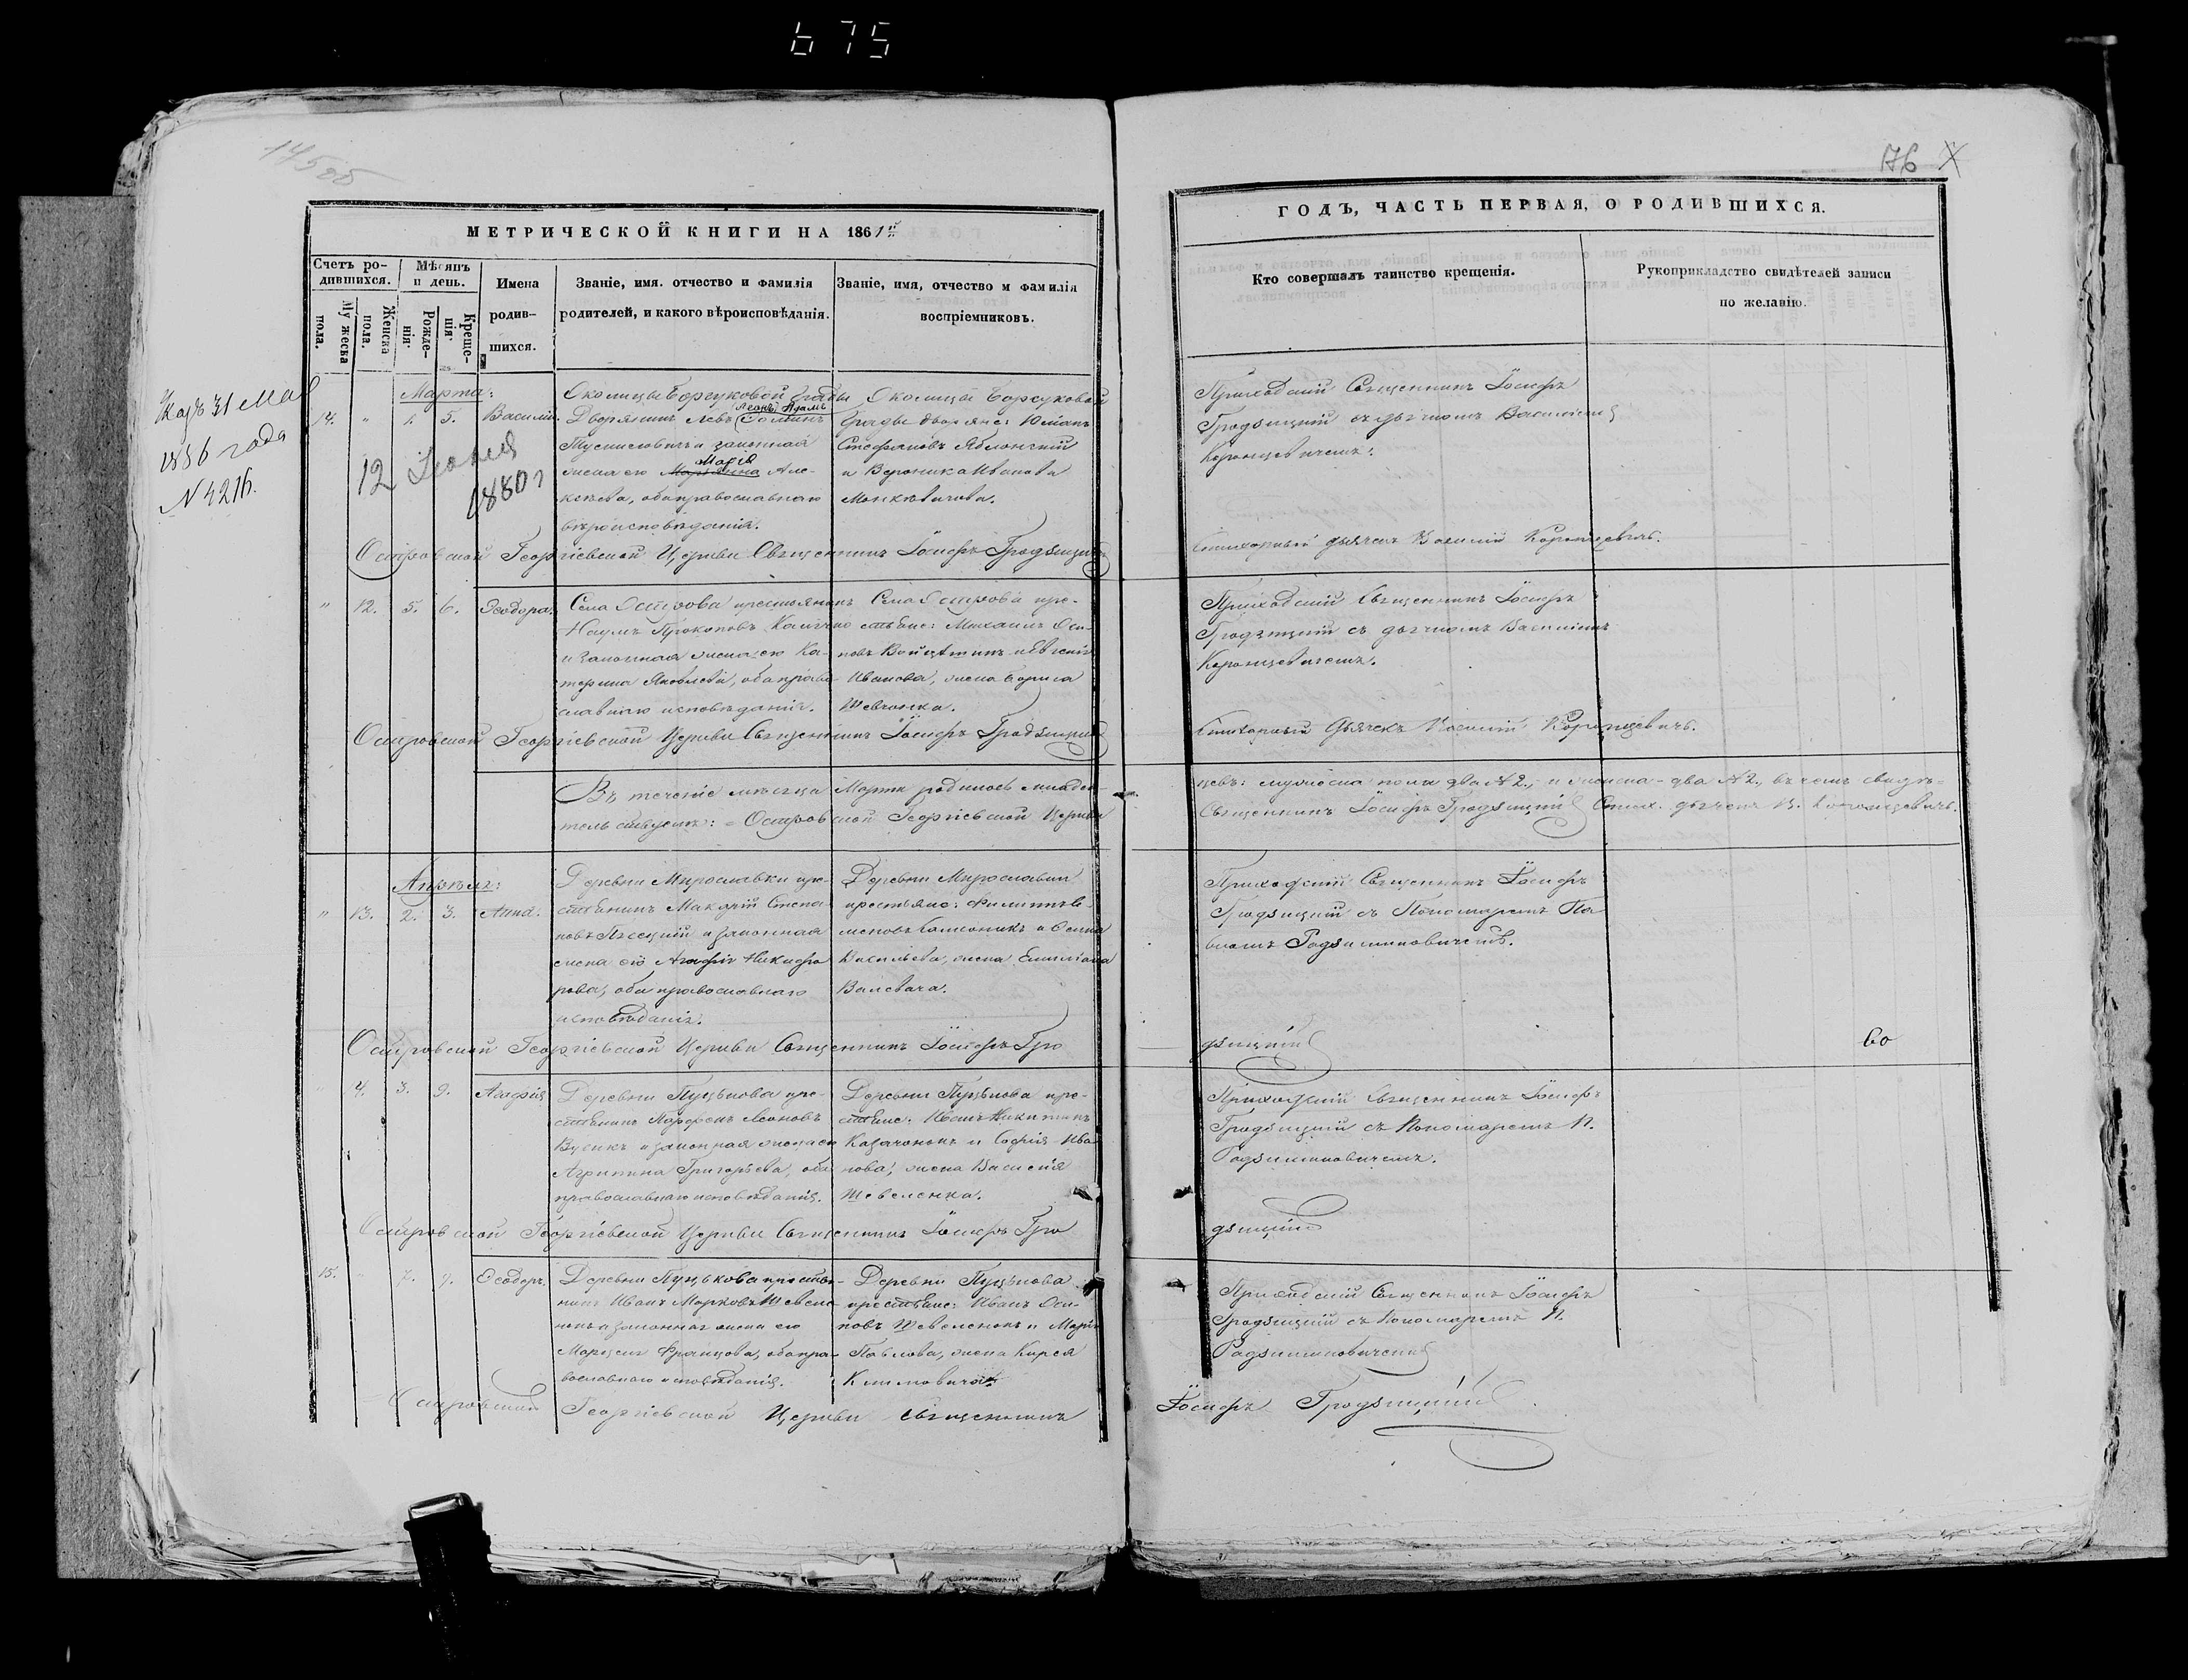 675
14500
176 X
МЕТРИЧЕСКОЙ КНИГИ НА 1861й
ГОДЪ, ЧАСТЬ ПЕРВАЯ, О РОДИВШИХСЯ.
Счетъ ро-
дившихся.
Мужеска
пола.
Женска
пола.
Мѣсяцъ
и день.
Рожде-
нія.
Креще-
нія.
Имена
родив-
шихся.
Званіе, имя. отчество и фамилія
родителей, и какого вѣроисповѣданія.
Званіе, имя, отчество и фамилія
воспріемниковъ.
Кто совершалъ таинство крещенія.
Рукоприкладство свидѣтелей записи
по желанію.
Указъ 31 Мая
1886 года
№ 4216.
12 Іюня
1880 г
Марта:
14. " 1. 5. Василій.
Околицы Борсуковой Грады
Дворянинъ Левъ
и законная
жена его Марія Але-
ксѣева, оба православнаго
вѣроисповѣданія.
Околицы Борсуковой
Грады дворяне: Юліанъ
Стефановъ Яблонскій
и Вероника Иванова
Приходскій Священникъ Іосифъ
Гродзицкій съ дьячкомъ Василіемъ
Коронцевичемъ.
Островской Георгіевской Церкви Священникъ Іосифъ Гродзицкій
Стихарный дьячекъ Василій Коронцевичъ.
" 12. 5. 6. Ѳеодора.
Села Острова крестьянинъ
Наумъ Прокоповъ
и законная жена его Ка-
терина Яковлева, оба право-
славнаго исповѣданія.
Села Острова кре-
стьяне: Михаилъ Оси-
повъ
Иванова, жена Бориса
Шевчонка.
Приходскій Священникъ Іосифъ
Гродзицкій съ дьячкомъ Василіемъ
Коронцевичемъ.
Островской Георгіевской Церкви Священникъ Іосифъ Гродзицкій
Стихарный Дьячекъ Василій Коронцевичъ.
Въ теченіе мѣсяца Марта родилось младен-
цевъ: мужеска пола два № 2., и женска - два № 2., въ чемъ свидѣ-
тельствуемъ: Островской Георгіевской Церкви
Священникъ Іосифъ Гродзицкій Стих. дьячекъ В. Коронцевичъ.
Апрѣля:
" 13. 2. 3. Анна.
Деревни Мирославки кре-
стьянинъ Макарій Степа-
новъ и законная
жена его Агафія Никифо
рова, оба православнаго
исповѣданія.
Деревни Мирославки
крестьяне:
Васильева, жена Емиліана
Валевача.
Приходскій Священникъ Іосифъ
Гродзицкій съ Пономаремъ Па
вломъ Радзиминовичемъ.
Островской Георгіевской Церкви Священникъ Іосифъ Гро
дзицкій
60
" 4. 3. 9. Агафія
Деревни Пуцѣкова кре-
стьянинъ Леоновъ
и законная жена его
Агрипина Григорьева, оба
православнаго исповѣданія.
Деревни Пуцѣкова кре-
стьяне: Иванъ Никитинъ
Казачонокъ и Софія Ива
нова, жена Василія
Шевеленка.
Приходскій Священникъ Іосифъ
Гродзицкій съ Пономаремъ П.
Радзиминовичемъ.
Островской Георгіевской Церкви Священникъ Іосифъ Гро
дзицкій
15. 7. 9. Ѳеодоръ.
Деревни Пуцѣкова крестья-
нинъ Иванъ Марковъ Шевеле
нокъ и законная жена его
Францова, оба пра-
вославнаго исповѣданія.
Деревни Пуцѣкова
крестьяне: Иванъ Оси-
повъ Шевеленокъ и Марія
Павлова, жена Карея
Климовича.
Приходскій Священникъ Іосифъ
Гродзицкій съ Пономаремъ П.
Радзиминовичемъ
Островской Георгіевской Церкви Священникъ
Іосифъ Гродзицкій